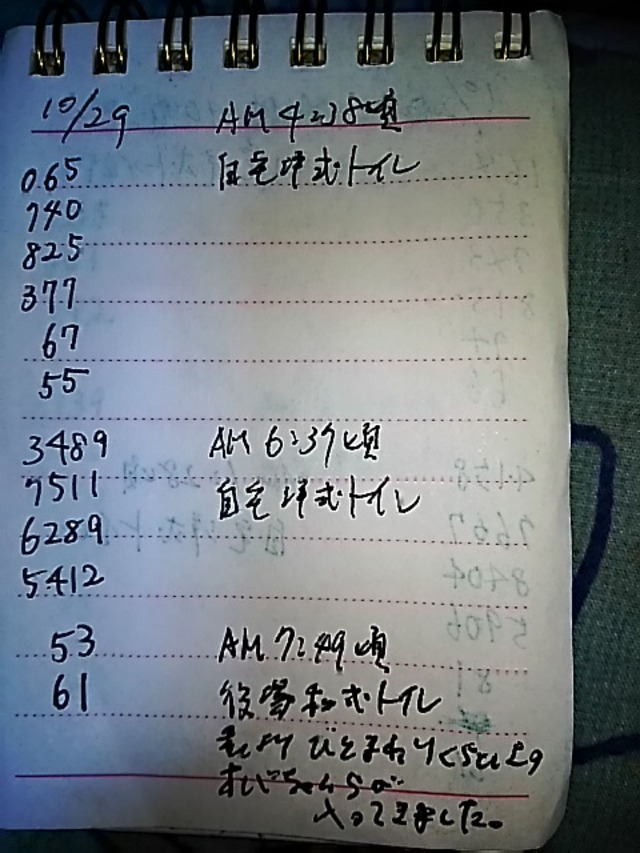 10/29 AM 4:38頃
065 自宅洋式トイレ
740
825
377
67
55
3489 AM 6:37頃
7511 自宅洋式トイレ
6289
5412
53 AM 7:49頃
61 役場和式トイレ
ひとまわりくらい上の
おじちゃんらが
入ってきました。